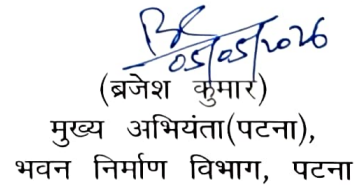 05/05/2026
(ब्रजेश कुमार)
मुख्य अभियंता(पटना),
भवन निर्माण विभाग, पटना